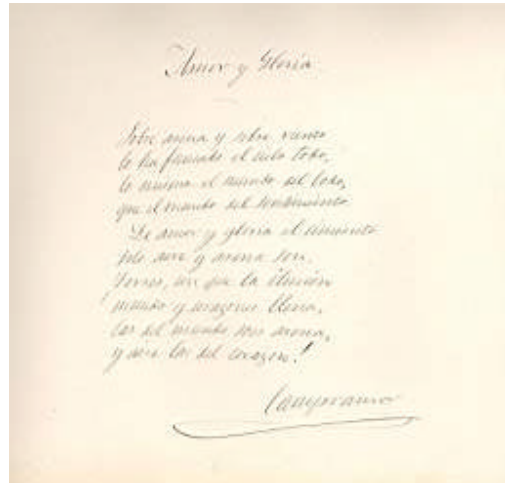 Amor y Gloria
Sobre arena y sobre viento
lo ha fundado el cielo todo,
lo mismo el mundo del lodo,
que el mundo del sentimiento.
De amor y gloria el cimiento
solo aire y arena son.
¡Torres, con que la ilusión
mundo y corazones llena,
las del mundo sois arena,
y aire las del corazón!
Campoamor